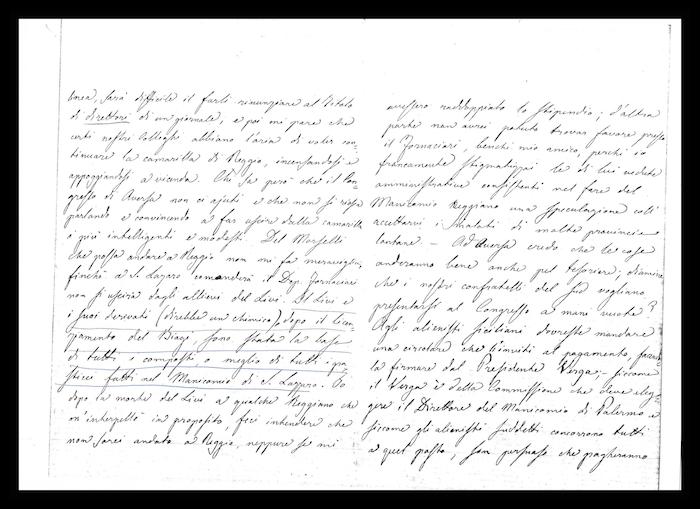 linea, sarà difficile il farli rinunziare al titolo
di direttori di un giornale, e poi mi pare che
certi nostri Colleghi abbiano l'aria di voler con-
tinuare la camarilla di Reggio, incensandosi e
appoggiandosi a vicenda. Chi sa però che il Con-
gresso di Aversa non ci ajuti e che non si riesca
parlando e convincendo a far uscire dalla camarilla
i più intelligenti e modesti. Del Morselli
che possa andare a Reggio non mi fa meraviglia,
finchè a S. Lazaro comanderà il Dep. Fornaciari
non si uscirà dagli allievi del Livi. Il Livi e
i suoi derivati (direbbe un chimico), dopo il licen-
ziamento del Biagi, sono stata la base
di tutti i composti, o meglio di tutti i pa-
sticci fatti nel Manicomio di S. Lazzaro. Io
dopo la morte del Livi a qualche Reggiano che
m'interpellò in proposito, feci intendere che
non sarei andato a Reggio, neppure se mi
avessero raddoppiato lo stipendio; d'altra
parte non avrei potuto trovar favore presso
il Fornaciari, benchè mio amico, perchè io
francamente stigmatizzai le di lui vedute
amministrative consistenti nel fare del
Manicomio Reggiano una speculazione coll'
accettarvi i malati di molte provincie
lontane. — Ad Aversa credo che le cose
anderanno bene anche pel tesoriere; diamine
che i nostri confratelli del Sud vogliano
presentarsi al Congresso a mani vuote?
Agli alienisti siciliani dovreste mandare
una circolare che l'inviti al pagamento, facendo-
la firmare dal Presidente Verga; — siccome
il Verga è della Commissione che deve eleg-
gere il Direttore del Manicomio di Palermo e
siccome gli alienisti suddetti concorrono tutti
a quel posto, son persuaso che pagheranno